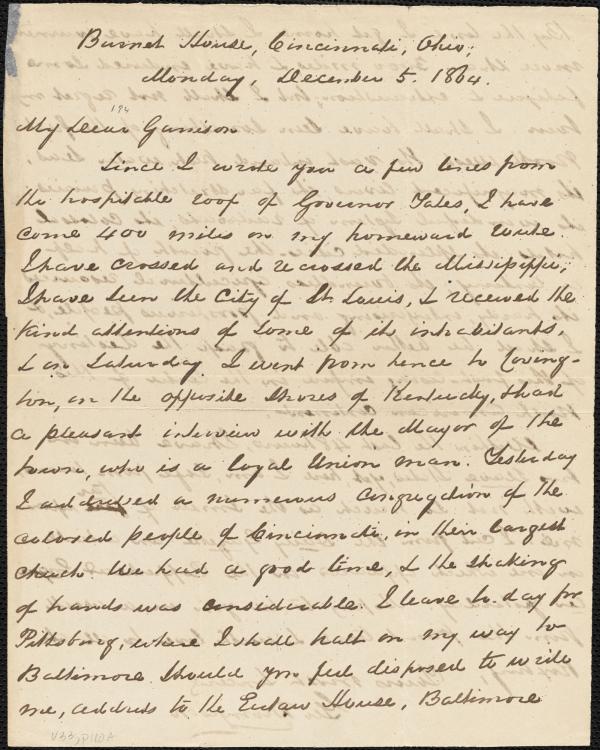 Burnet House, Cincinnati, Ohio;
Monday, December 5. 1864.
My Dear Garrison
Since I wrote you a few lines from
the hospitable roof of Governor Yates, I have
come 400 miles on my homeward route.
I have crossed and recrossed the Mississippi;
I have seen the City of St. Louis, & received the
kind attentions of some of its inhabitants,
& on Saturday I went from hence to Coving-
ton, on the opposite shores of Kentucky, & had
a pleasant interview with the Mayor of the
town, who is a loyal Union man. Yesterday
I addressed a numerous congregation of the
colored people of Cincinnati, in their largest
church. We had a good time, & the shaking
of hands was considerable. I leave to-day for
Pittsburg, where I shall halt on my way to
Baltimore. Should you feel disposed to write
me, address to the Eutaw House, Baltimore
V33, P110A